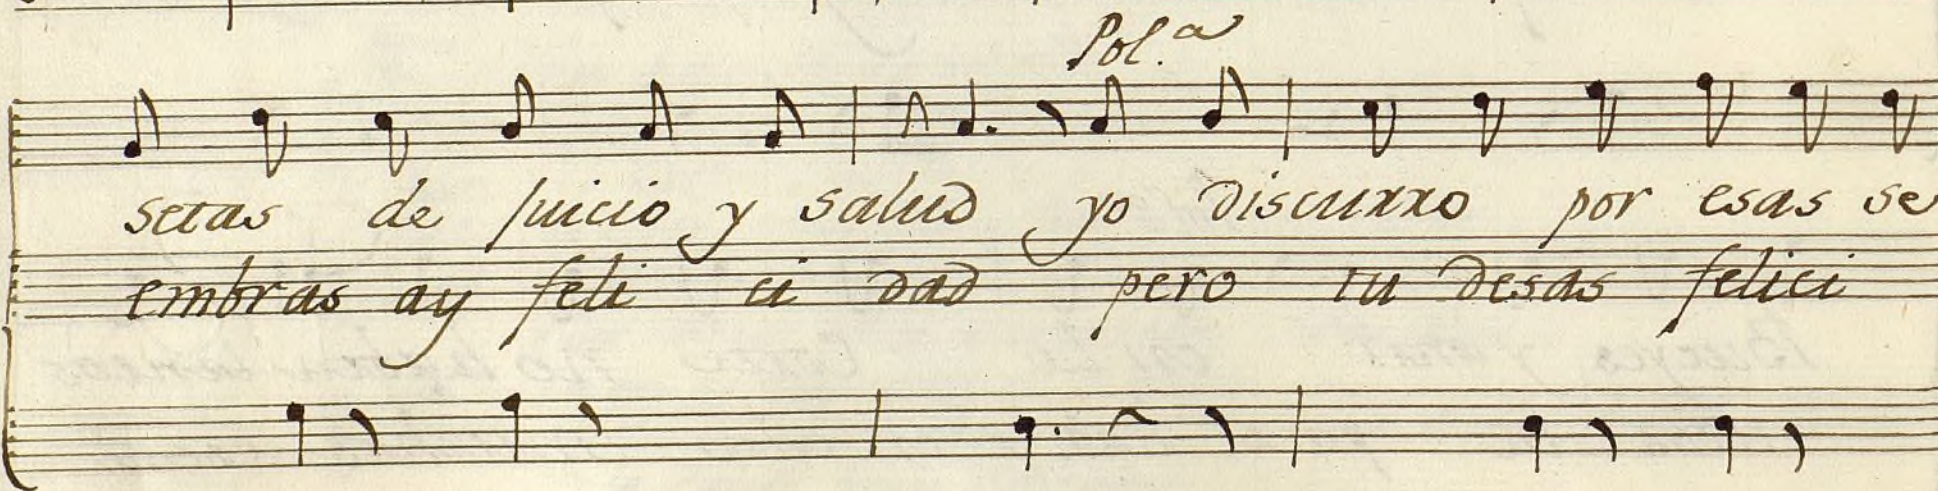 Pol.ª
setas de juicio y salud yo discurro por esas se
embras ay feli ci dad pero tu desas felici